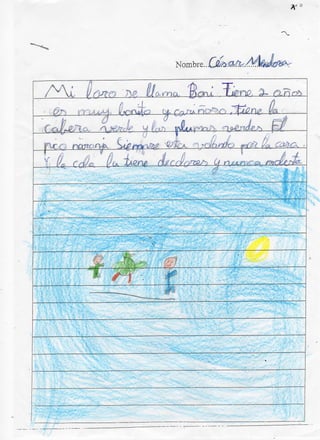 Nombre..César Mendoza
Mi loro se llama Boni. Tiene 2 años
es muy bonito y cariñoso. Tiene la
cabeza verde y las plumas verdes. El
pico naranja. Siempre esta volando por la casa.
Y la cola la tiene de colores y nunca molesta.